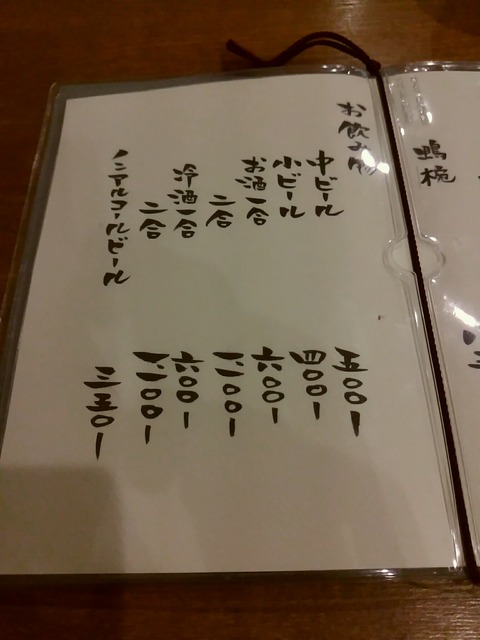 お飲み物
中ビール 五〇〇ー
小ビール 四〇〇ー
お酒一合 六〇〇ー
二合 一二〇〇ー
冷酒一合 六〇〇ー
二合 一二〇〇ー
ノンアルコールビール 三五〇ー
鴨椀